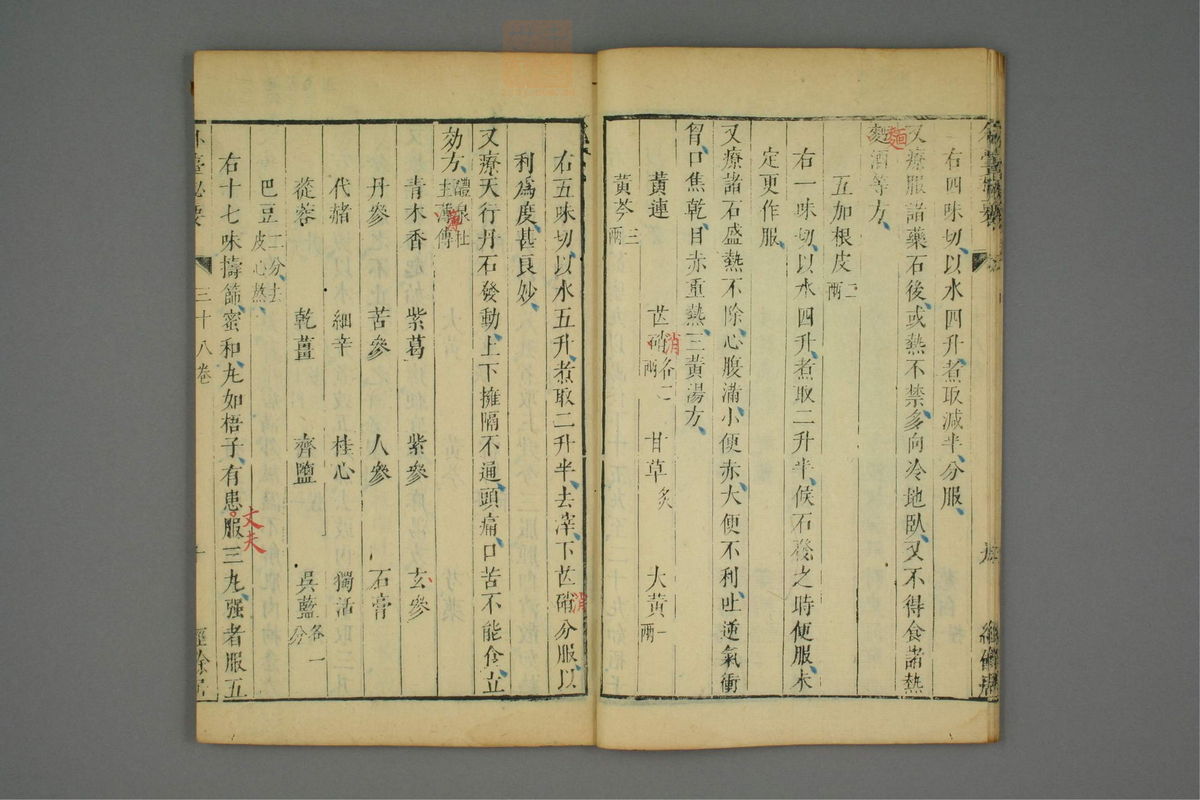 右四味切以水四升煮取減半分服
又療服諸藥石後或熱不禁多向冷地臥又不得食諸熱
麪酒等方
麵
五加根皮二兩
右一味切以水四升煮取二升半候石發之時便服未
定更作服
又療諸石盛熱不除心腹滿小便赤大便不利吐逆氣衝
胷口焦乾目赤重熱三黃湯方
黃連 芒硝各二兩 甘草炙 大黃一兩
消
黃芩三兩
右五味切以水五升煮取二升半去滓下芒硝分服以
消
利爲度甚良妙
又療天行丹石發動上下擁隔不通頭痛口苦不能食立
効方醴泉杜主簿傳
青木香 紫葛 紫參 玄參
丹參 苦參 人參 石膏
代赭 細辛 桂心 獨活
蓯蓉 乾薑 齊鹽 吳藍各一分
巴豆二分去皮心熬
右十七味擣篩蜜和丸如梧子有患服三丸强者服五
丈夫
外臺秘要 三十八卷 十 經餘居